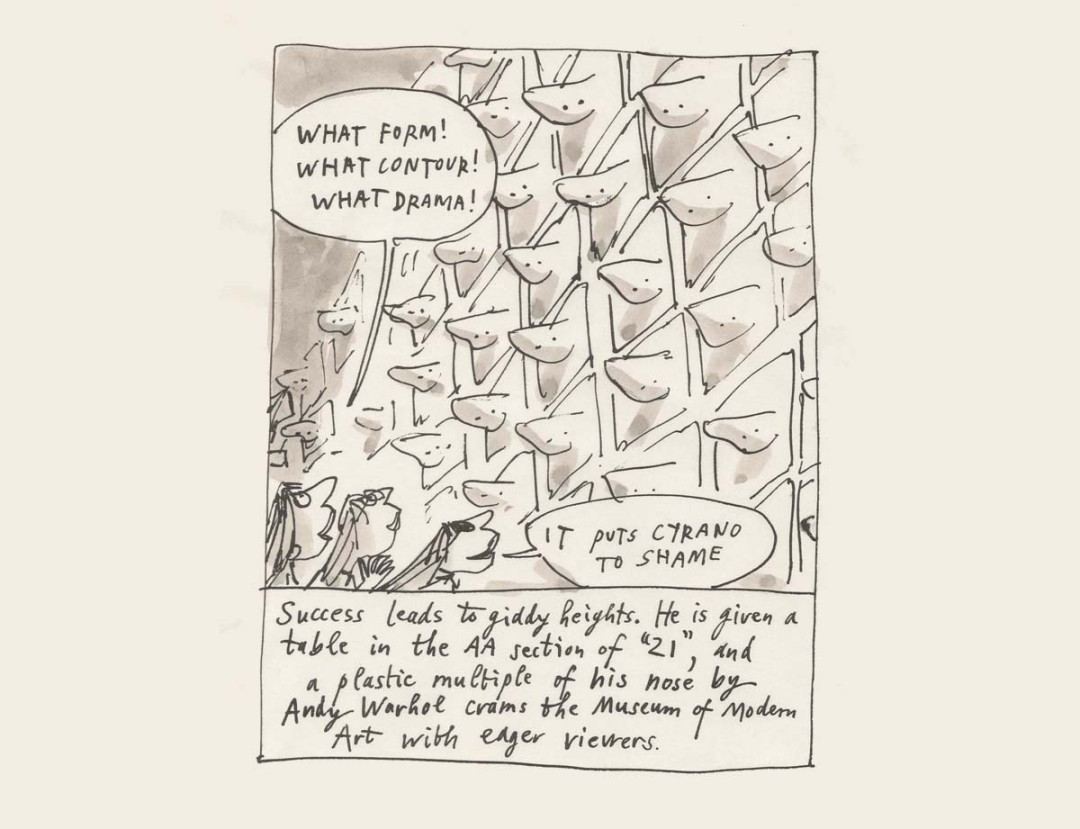 WHAT FORM!
WHAT CONTOUR!
WHAT DRAMA!
IT PUTS CYRANO
TO SHAME
Success leads to giddy heights. He is given a
table in the AA section of "21", and
a plastic multiple of his nose by
Andy Warhol crams the Museum of Modern
Art with eager viewers.